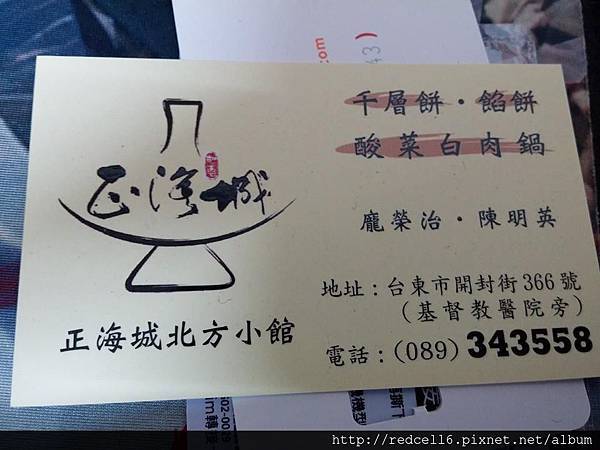 .com
43)
千層餅・餡餅
酸菜白肉鍋
正海城
龐榮治・陳明英
地址:台東市開封街366號
(基督教醫院旁)
正海城北方小館
電話:(089)343558
http://redcell6.pixnet.net/album